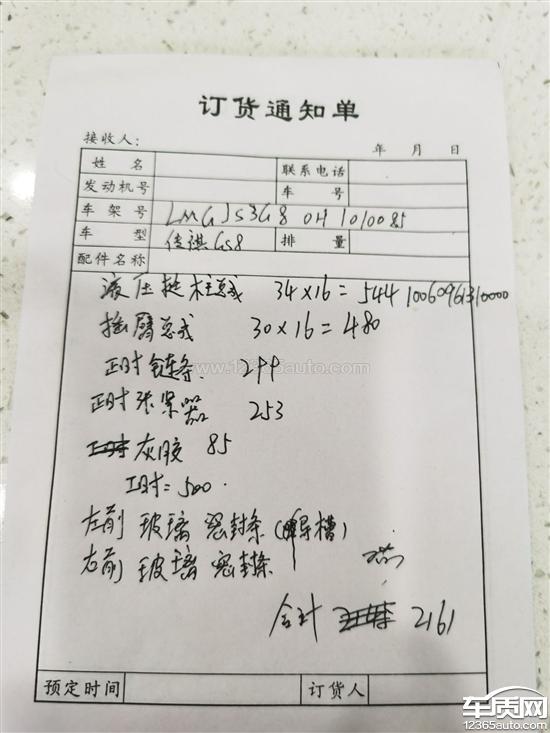 订货通知单
接收人： 年 月 日
姓名 联系电话
发动机号 车号
车架号 LMG1S3G8 0H 1010085
车型 传祺GS8 排量
配件名称
液压挺柱总成 34×16=544 10060961310000
摇臂总成 30×16=480
正时链条 299
www.12365auto.com
正时张紧器 253
灰胶 85
工时=500
左前 玻璃 密封条(导槽)
右前 玻璃 密封条
合计 2161
预定时间 订货人
车质网
12365auto.com